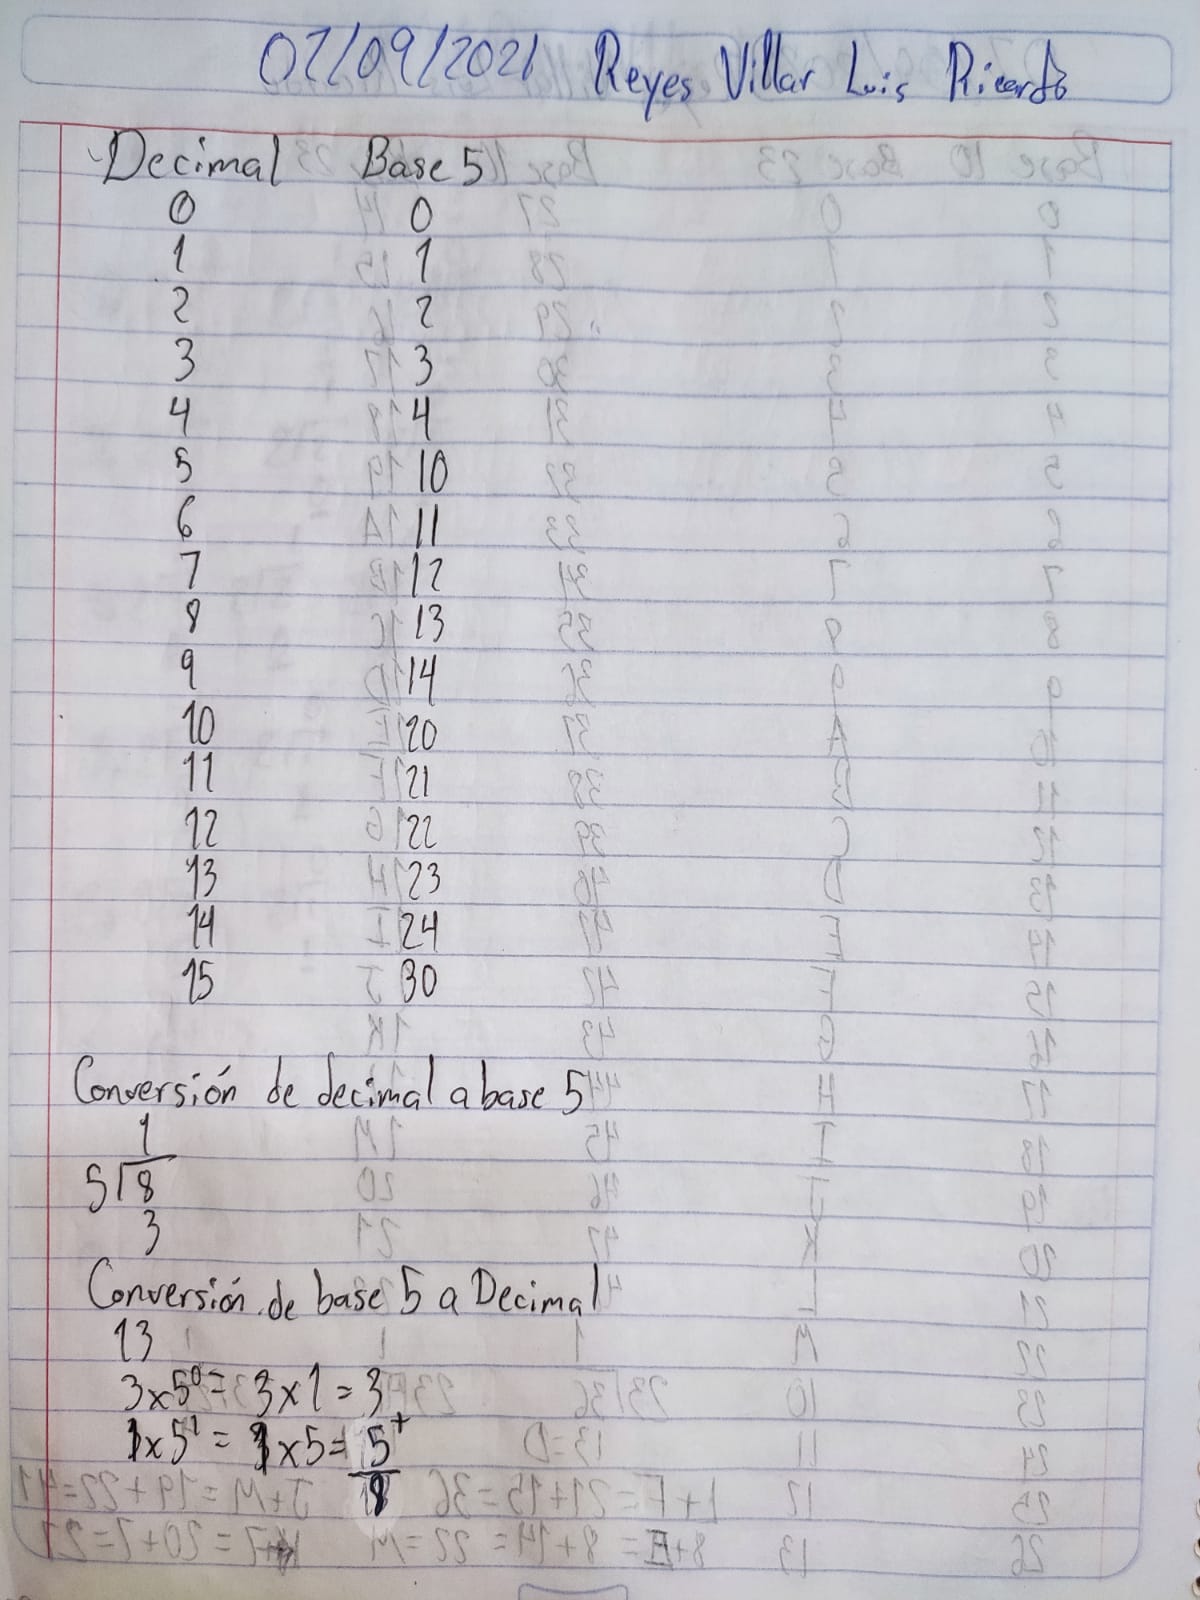 07/09/2021 Reyes Villar Luis Ricardo
Decimal Base 5
0 0
1 1
2 2
3 3
4 4
5 10
6 11
7 12
8 13
9 14
10 20
11 21
12 22
13 23
14 24
15 30
Conversión de decimal a base 5
1
5√8
3
Conversión de base 5 a Decimal
13
3x5⁰= 3x1=3
1x5¹ = 1x5=5+
8